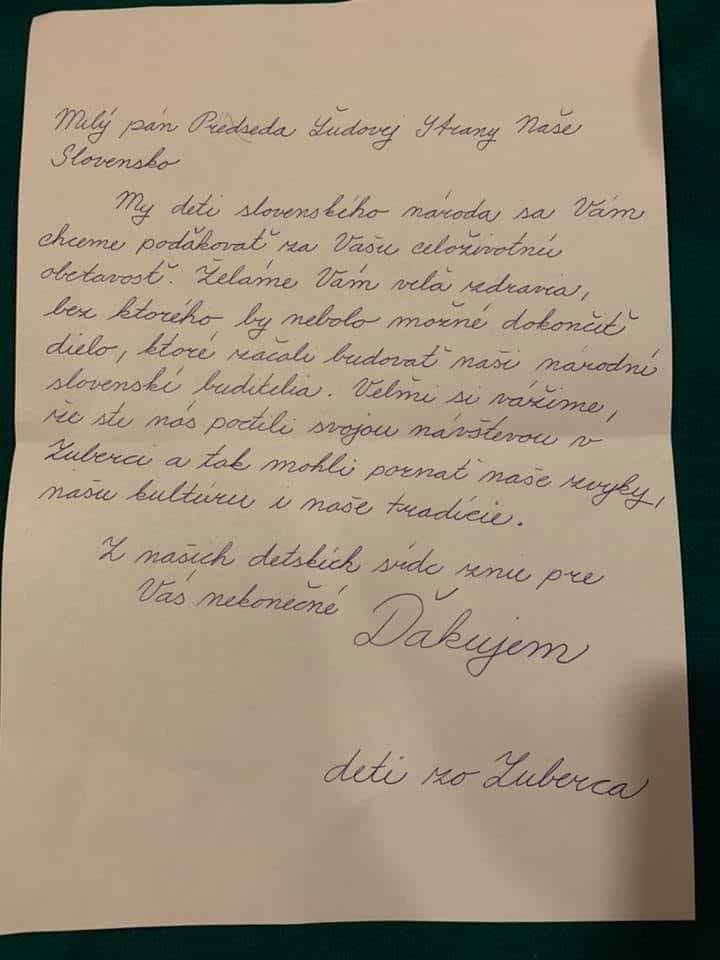 Milý pán Predseda Ľudovej Strany Naše
Slovensko
My deti slovenského národa sa Vám
chceme poďakovať za Vašu celoživotnú
obetavosť. Želáme Vám veľa zdravia,
bez ktorého by nebolo možné dokončiť
dielo, ktoré začali budovať naši národní
slovenskí buditelia. Veľmi si vážime,
že ste nás poctili svojou návštevou v
Zuberci a tak mohli poznať naše zvyky,
našu kultúru i naše tradície.
Z našich detských sŕdc znie pre
Vás nekonečné Ďakujem
deti zo Zuberca